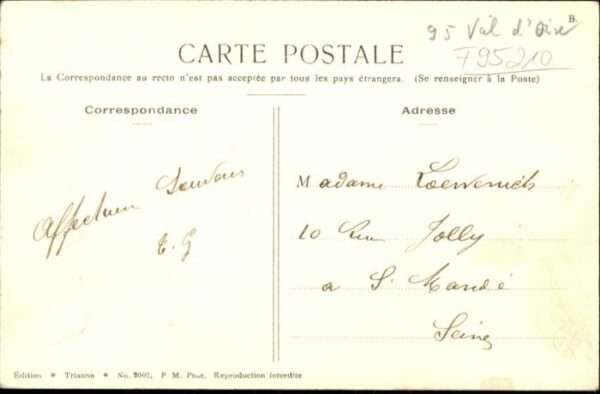 95 Val d'Oise
B.
F95210
CARTE POSTALE
La Correspondance au recto n'est pas acceptée par tous les pays étrangers. (Se renseigner à la Poste)
Correspondance
Adresse
Affectueux Souvenir
E. G
Madame
10 Rue Jolly
a St Mandé
Seine
Édition * Trianon * No. 2007, P. M. Phot. Reproduction interdite